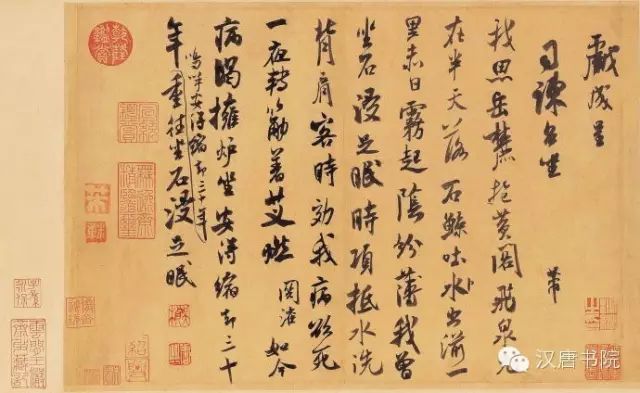 戲成呈
司諫台坐
芾
我思岳麓抱黃閣飛泉元
在半天落石鯨吐水出湔一
里赤日霧起陰紛薄我曾
坐石浸足眠時項抵水洗
背肩客時効我病欲死
一夜轉筋著艾燃 如今
病渴擁爐坐安得縮却三十
嗚呼安得縮却三十年
年重往坐石浸足眠
乾隆鑑賞
汉唐书院